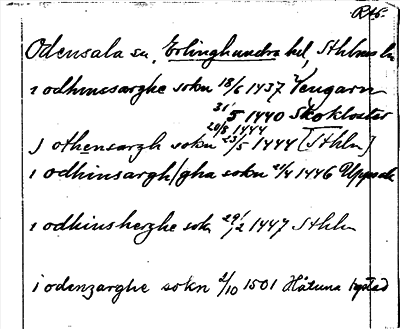 RAÖ.
Odensala sn, Erlinghundra hd, Sthlms ln
i odhinsarghe sokn 18/5 1437 Vengarn
31/5 1440 Skokloster
20/8 1444
j othensargh sokn 23/5 1444 [Sthlm]
i odhinsargh/gha sokn 21/4 1446 Uppsala
i odhinsherghe sok 29/2 1447 Sthlm
i odenzarghe sokn 2/10 1501 Håtuna tgstad